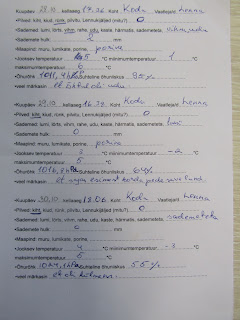 •Kuupäev 28.10 kellaaeg 17.26 Koht Kodu Vaatlejad henna
•Pilved: kiht, kiud, rünk, pilvitu, Lennukijäljed (mitu?) 0
•Sademed: lumi, lörts, vihm, rahe, udu, kaste, härmatis, sademeteta,
•Sademete hulk 2 mm
•Maapind: muru, lumikate, porine, porine
•Jooksev temperatuur 5 °C miinimumtemperatuur 1 °C
maksimumtemperatuur 6 °C
•Õhurõhk suhteline õhuniiskus 95%
•veel märkasin et
•Kuupäev 29.10 kellaaeg 16.39 Koht Kodu Vaatlejad henna
•Pilved: kiht, kiud, rünk, pilvitu, Lennukijäljed (mitu?) 0
•Sademed: lumi, lörts, vihm, rahe, udu, kaste, härmatis, sademeteta,
•Sademete hulk 0 mm
•Maapind: muru, lumikate, porine, porine
•Jooksev temperatuur 3 °C miinimumtemperatuur -2 °C
maksimumtemperatuur 5 °C
•Õhurõhk 1016, hPa suhteline õhuniiskus 64%
•veel märkasin et
•Kuupäev 30.10 kellaaeg 18.06 Koht Kodu Vaatlejad henna
•Pilved: kiht, kiud, rünk, pilvitu, Lennukijäljed (mitu?) 0
•Sademed: lumi, lörts, vihm, rahe, udu, kaste, härmatis, sademeteta, sademeteta
•Sademete hulk 0 mm
•Maapind: muru, lumikate, porine,
•Jooksev temperatuur 4 °C miinimumtemperatuur -3 °C
maksimumtemperatuur 5 °C
•Õhurõhk hPa suhteline õhuniiskus 55%
•veel märkasin et oli külmem